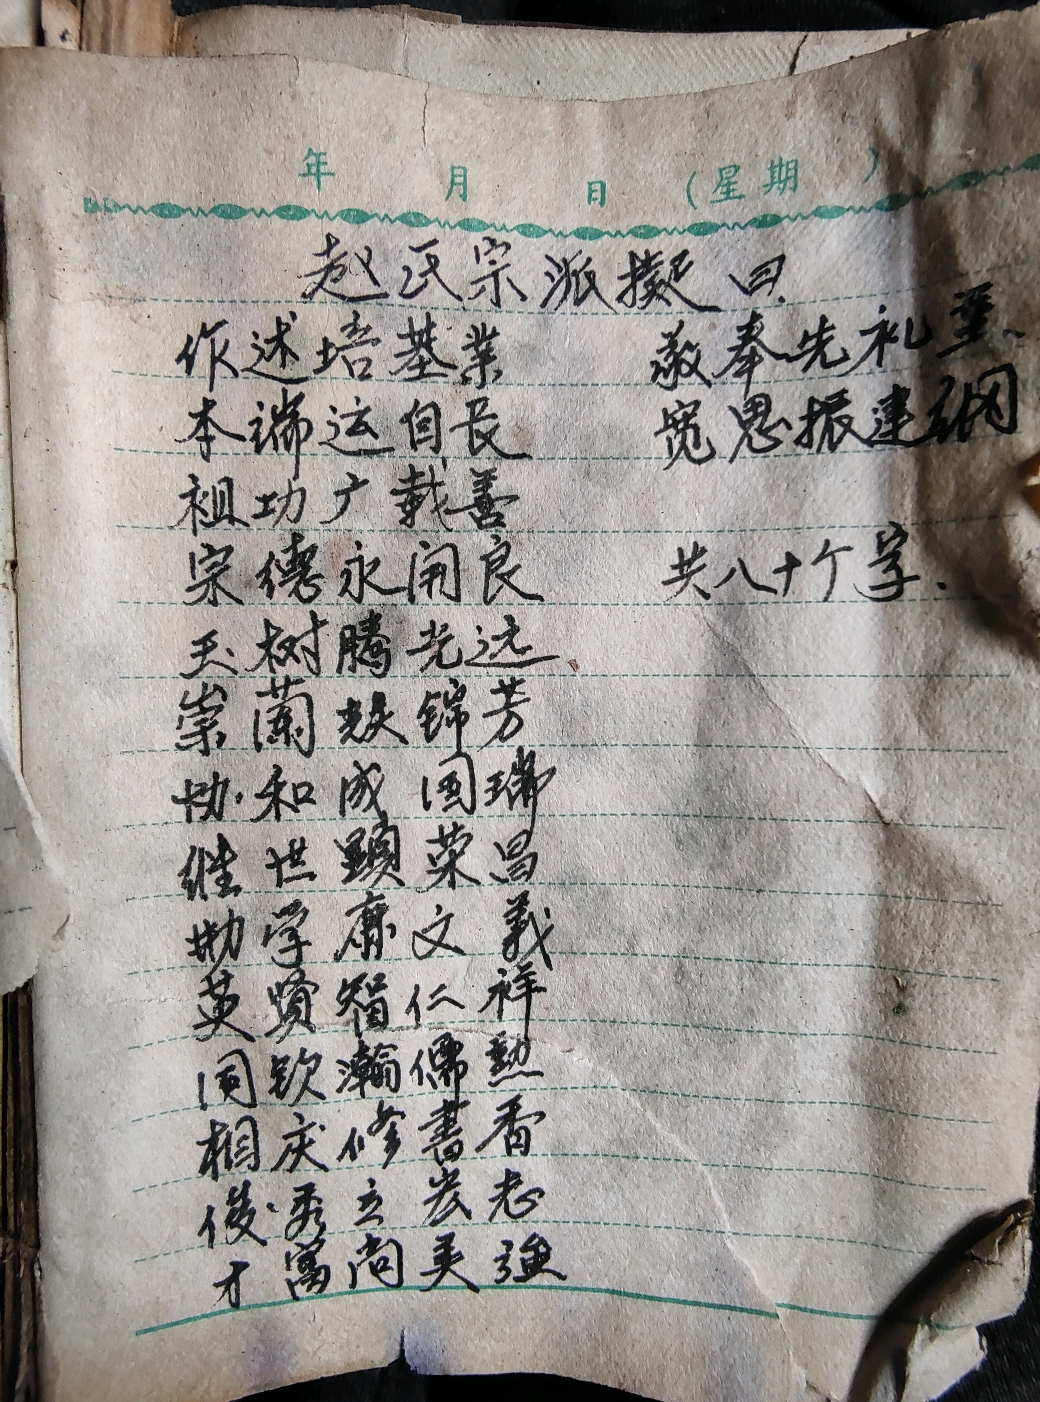 年 月 日 (星期 )
赵氏宗派拟曰
作述培基業
本端运自長
祖功广載善
宗德永开良
玉树腾光远
崇蘭焕锦芳
协和成国瑞
继世顕荣昌
学廉文義
英賢智仁祥
同钦瀚儒勲
相庆修書香
俊秀立宏志
才富尚美強
敬奉先礼
宽思振建纲
共八十个字.